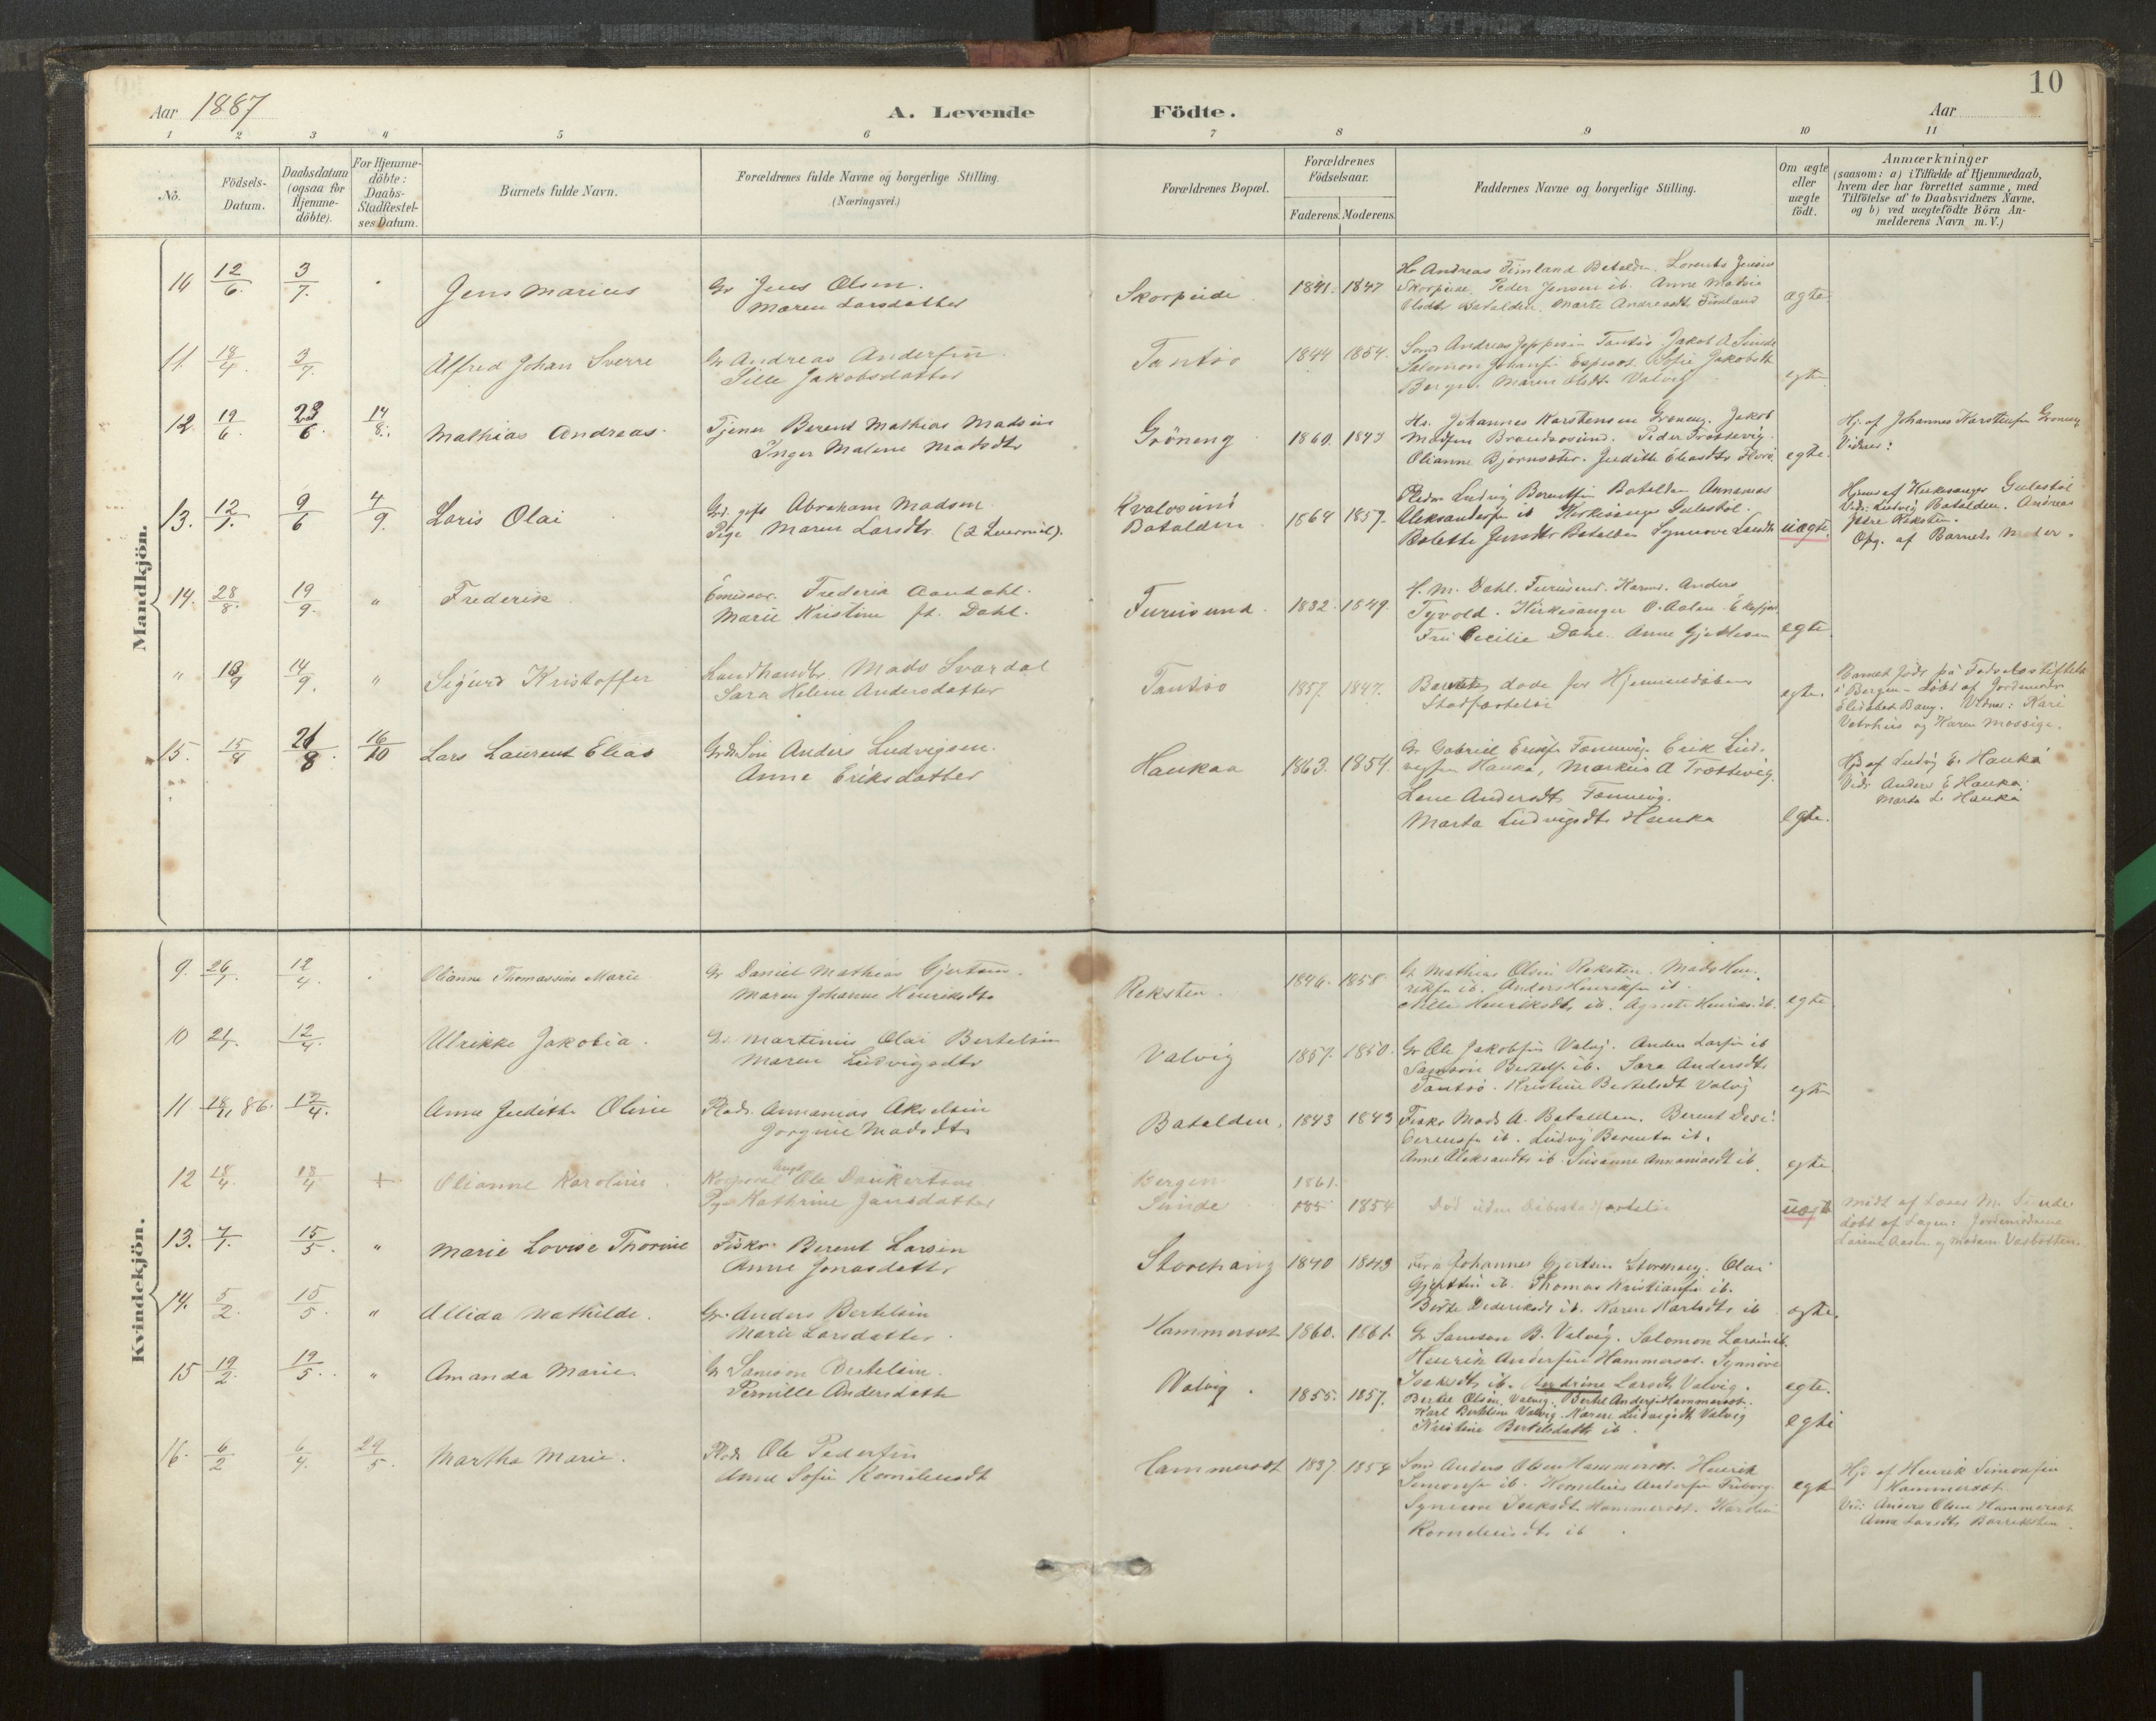 10
Aar 1887
A. Levende Födte.
Aar
1 2 3 4 5 6 7 8 9 10 11
No.
Födsels-Datum.
Daabsdatum (ogsaa for Hjemme-döbte).
For Hjemme-döbte: Daabs-Stadfæstel-ses Datum.
Barnets fulde Navn.
Forældrenes fulde Navne og borgerlige Stilling.
(Næringsvei.)
Forældrenes Bopæl.
Forældrenes Födselsaar.
Faderens. Moderens.
Faddernes Navne og borgerlige Stilling.
Om ægte eller uægte födt.
Anmærkninger
(saasom: a) i Tilfælde af Hjemmedaab,
hvem der har forrettet samme, med
Tilföielse af to Daabsvidners Navne.
og b) ved uægtefödte Börn An-
melderens Navn m.V.)
Mandkjön.
10 12/6. 3/7. Jens Marius
Gr Jens Olsen.
Maren Larsdatter
Skorpeide 1841. 1847
Andreas Timland Batalden. Lorents Jensen
Skorpeide. Peder Jensen ib. Anne
Batalden. Marte Andreasdt. Timland
ægte
11. 18/4. 3/7. Alfred Johan Sverre
Gr Andreas Andersen.
Sille Jakobsdatter
Tantsø 1844 1854.
Andreas Jeppesen Tantsø. Jakob A Sunde
Salomon Espeset. Sofie Jakobsdt
Bergen. Maren Olsdt. Valvig
egte
12 19/6. 23/6. 14/8. Mathias Andreas
Tjener Berent Mathias Madsen
Inger Malene Madsdtr
Grøneng 1860. 1843
Johannes Karstensen Grøneng. Jakob
Madsen Brandsøsund. Peder Trættevig.
Olianne Bjørnsæter. Judithe Eliasdtr Florø.
egte.
Hj. af Johannes Karstensen Grøneng
Vidner:
13. 12/1. 9/6 4/9. Loris Olai
Abraham Madsen
Pige Maren Larsdtr. (2 Leiermål).
Kvaløsund
Batalden 1864 1859.
Ludvig Berentsen Batalden Annanias
Aleksandersen ib Kirkesanger Gulestøl.
Bolette Jensdtr Batalden Synnøve Larsdt
uægte.
Hjemd af Kirkesanger Gulestøl
Vid: Ludvig Batalden. Andreas
Reksten.
Opg. af Barnets Moder.
14. 28/8. 19/9. " Frederik
Frederik Aandahl.
Marie Kristine fd. Dahl.
Furusund. 1832. 1849.
H. M. Dahl. Furusund. Anders
Tyvold. Kirkesanger O. Aalen.
Fru Cecilie Dahl. Anne Gjertsen
egte
" 18/9 14/9. " Sigurd Kristoffer
Landhandlr. Mads Svardal
Sara Helene Andersdatter
Tantsø 1857. 1847.
Barnet døde før Hjemmedøbens
Stadfæstelse
egte.
Barnet født på Fødselsstiftelsen
i Bergen - døbt af Jordemoder
Elisabet Bang. Vidner: Kari
og Karen Mossige.
15. 15/8 21/8. 16/10 Lars Laurent Elias
Grdr.Søn Anders Ludvigsen.
Anne Eriksdatter
Haukaa 1863. 1854.
Gr Gabriel Eriksen Fanevig. Erik Lud-
vigsen Hauka, Markus A Trættevig.
Lene Andersdt. Fanevig.
Marta Ludvigsdt. Hauka
egte.
Hjd af Ludvig E. Hauka
Vid: Anders E Hauka
Marta L. Hauka
Kvindekjön.
9. 26/1. 12/4. Olianne Thomassine Marie
Gr Daniel Mathias Gjertsen.
Maren Johanne Henriksdtr
Reksten. 1846. 1858.
Gr Mathias Olsen Reksten. Mads Hen-
riksen ib. Anders Henriksen ib.
Henriksdtr ib. Agnete Henriksd. ib.
egte
10 12/4. Ulrikke Jakobia.
Gr. Martinus Olai Bertelsen
Maren Ludvigsdtr
Valvig 1857. 1850.
Gr Ole Jakobsen Valvig. Anders Larsen ib
Samson Bertels. ib. Sara Andersdtr
Tantsø. Kristine Bertelsdt Valvig
egte
11 86. 12/4. Anne Judithe Oline
Annanias Akselsen
Jorgine Madsdtr
Batalden, 1843 1843
Fisker Mads A. Batalden. Berent Desi-
deriusen ib. Ludvig Berents ib.
Anne Aleksandtr ib. Susanne Annaniasdt ib.
egte
12 18/4. 18/4 + Olianne Karoline.
Korporal Ole Dankertsen
Pige Kathrine Jansdatter
Bergen 1861.
Sunde 1854
Død uden
uægte
døbt af Jordemoderne
13. 7/1. 15/5. " Marie Lovise Thorine
Fisker Berent Larsen
Anne Jonasdatter
Storehaug 1840 1843
Johannes Gjertsen Storehaug. Olai
Gjertsen ib. Thomas Kristiansen ib.
Berte Dideriksdt ib. Karen ib
ægte.
14. 5/2. 15/5. " Allida Mathilde.
Gr. Anders Bertelsen
Marie Larsdatter
Hammerset 1860. 1861.
Gr Samson B. Valvig. Salomon Larsen ib.
Henrik Andersen Hammerset. Synnøve
Isaksdt. ib. Andrine Larsdt. Valvig.
egte.
15 19/2. 19/5. " Amanda Marie.
Gr Samson Bertelsen.
Pernille Andersdatter
Valvig. 1855. 1857.
Bertel Olsen Valvig. Bertel Anders. Hammerset.
Karl Bertelsen Valvig. Karen Ludvigsdt Valvig
Kristine Bertelsdatter ib.
egte
16. 6/2 6/4. 29/5. Martha Marie.
Ole Pedersen
Anne Sofie Korneliusdt
Hammerset 1837 1854
Anders Olsen Hammerset. Henrik
Simonsen ib. Kornelius Andersen
Synnøve Isaksdt. Hammerset. Karoline
Korneliusdtr ib.
egte
Hjd af Henrik Simonsen
Hammerset
Vid: Anders Olsen Hammerset
Anne Larsdtr